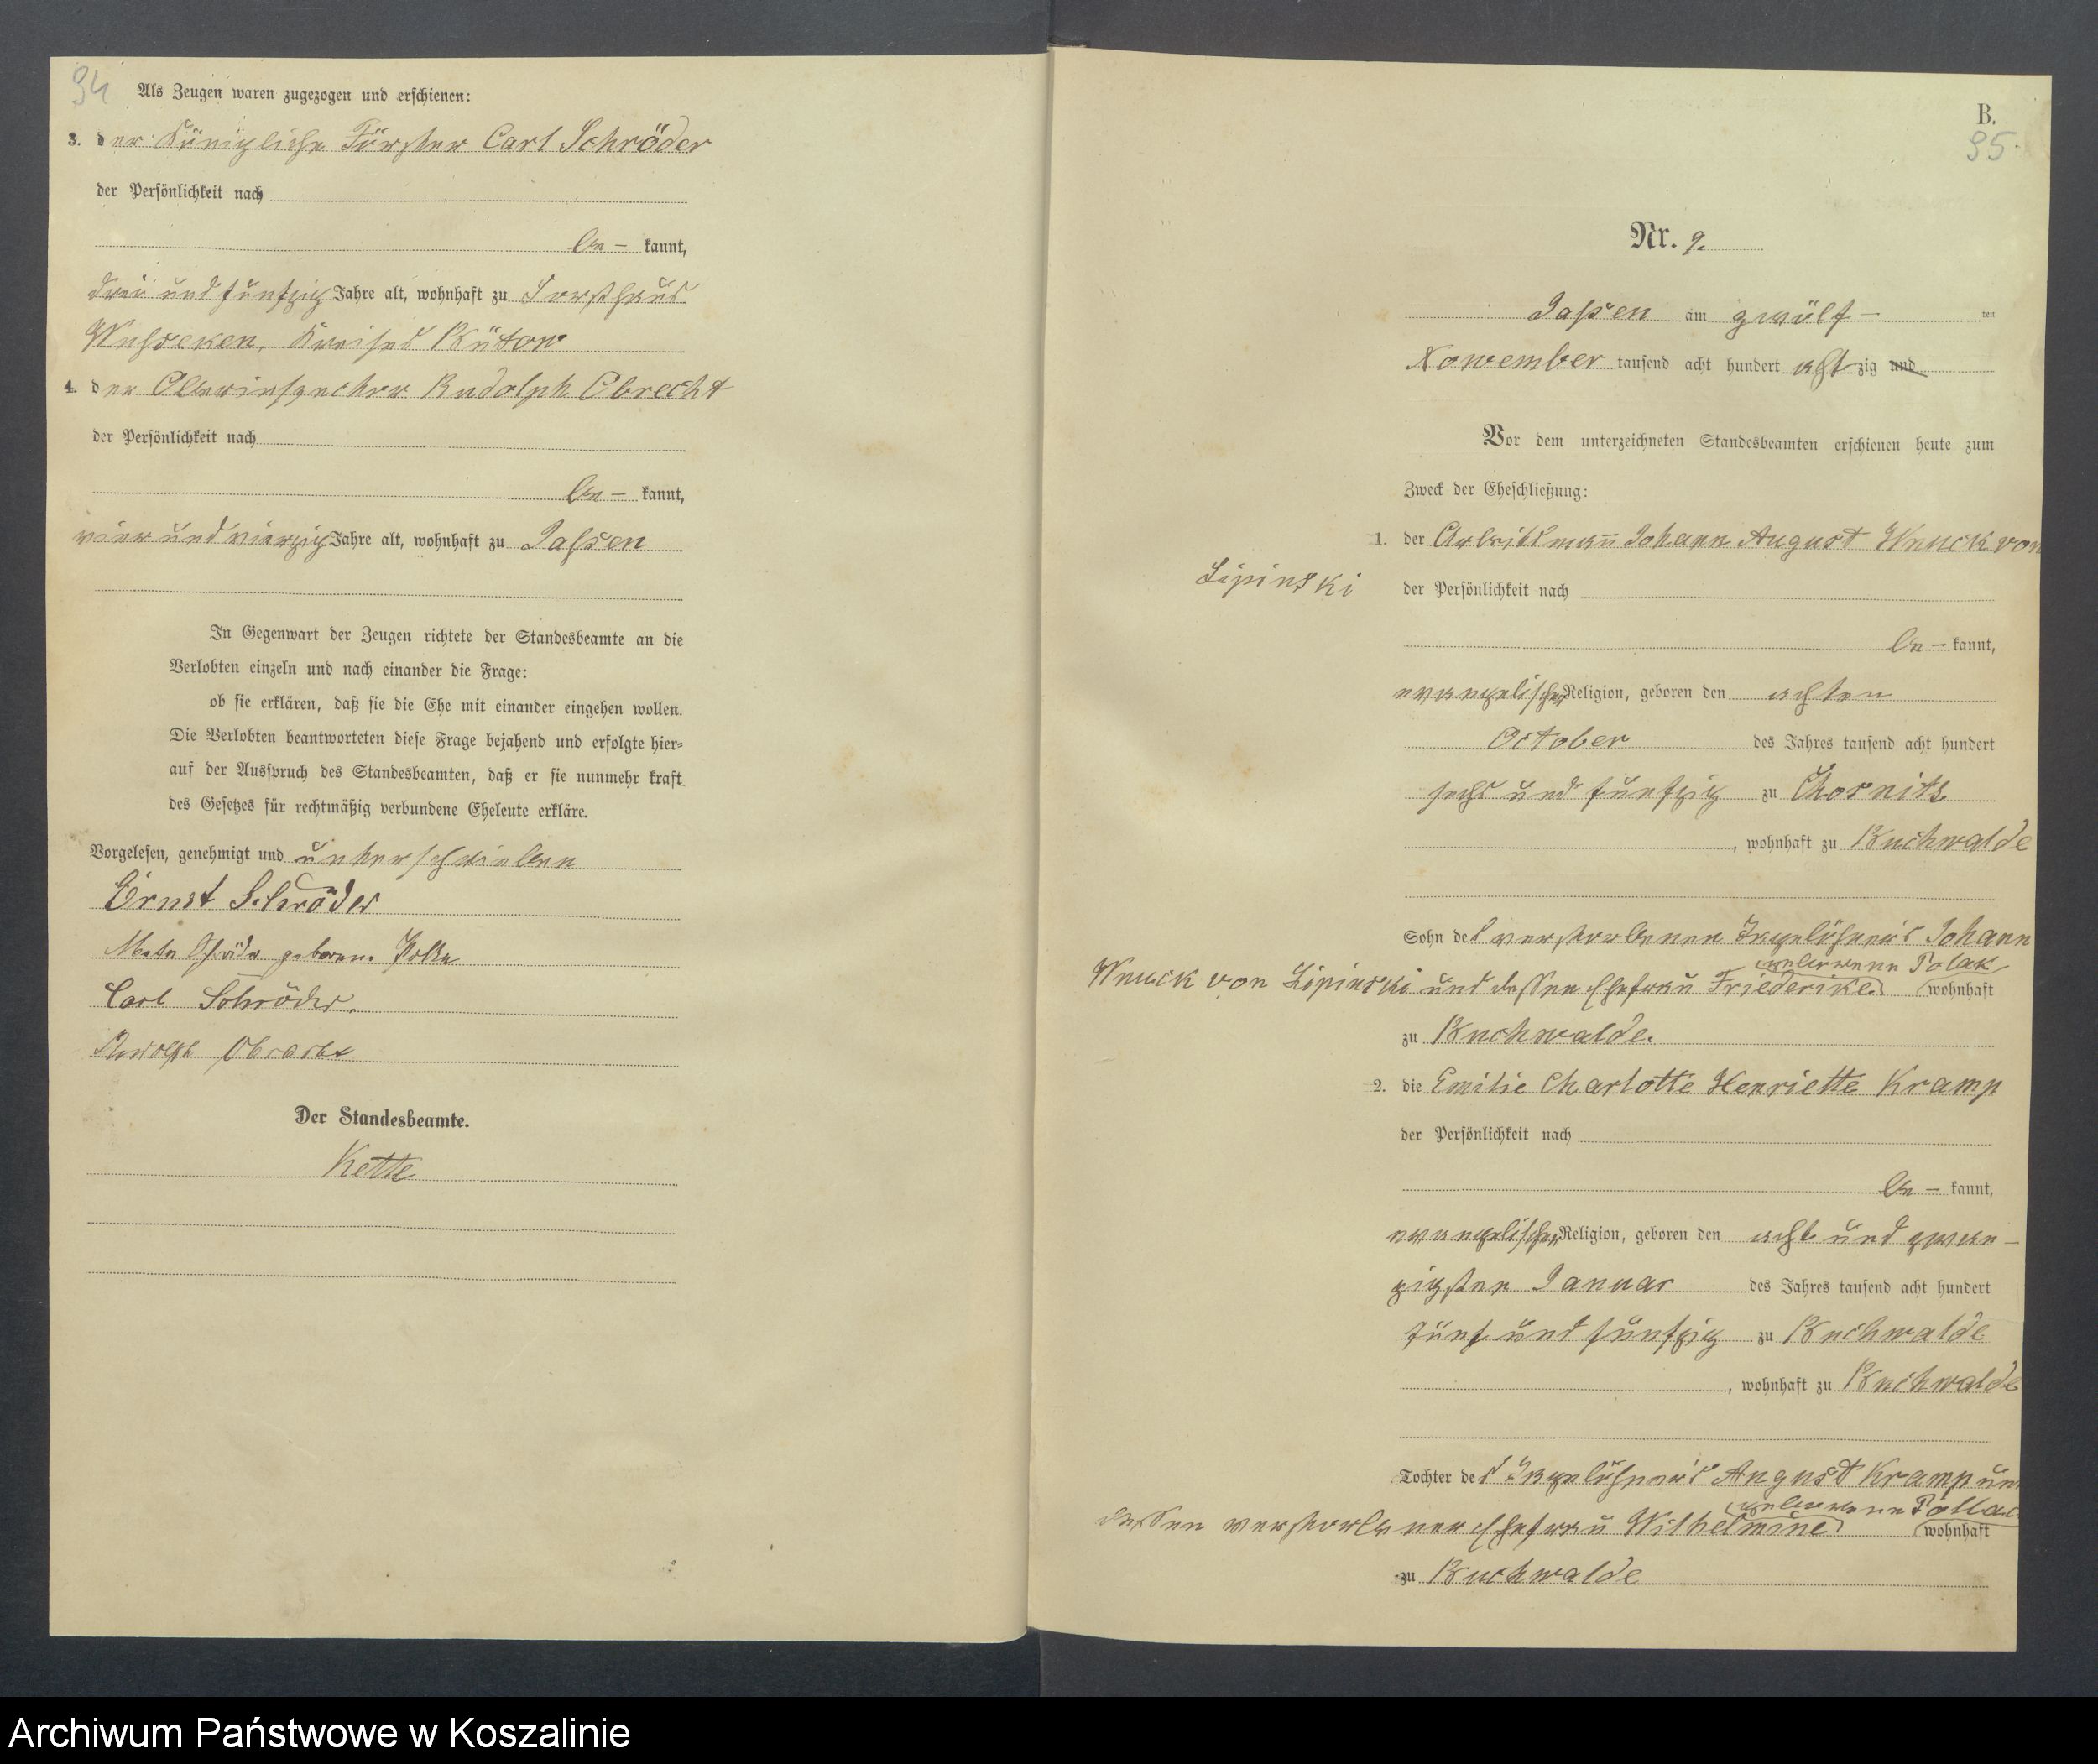 94
Als Zeugen waren zugezogen und erschienen:
3. der Königliche Förster Carl Schröder
der Persönlichkeit nach
be- kannt,
drei und fünfzig Jahre alt, wohnhaft zu Forsthaus
Wusseken, Kreises Bütow
4. der Oberinspector Rudolph Obrecht
der Persönlichkeit nach
be- kannt,
vier und vierzig Jahre alt, wohnhaft zu Jassen
In Gegenwart der Zeugen richtete der Standesbeamte an die
Verlobten einzeln und nach einander die Frage:
ob sie erklären, daß sie die Ehe mit einander eingehen wollen.
Die Verlobten beantworteten diese Frage bejahend und erfolgte hier-
auf der Ausspruch des Standesbeamten, daß er sie nunmehr kraft
des Gesetzes für rechtmäßig verbundene Eheleute erkläre.
Vorgelesen, genehmigt und unterschrieben
Ernst Schröder
Meta Schröder geborene
Carl Schröder.
Rudolph Obrecht
Der Standesbeamte.
Kette
B.
95.
Nr. 9.
Jassen am zwölf- ten
November tausend acht hundert achtzig und
Vor dem unterzeichneten Standesbeamten erschienen heute zum
Zweck der Eheschließung:
1. der Arbeitsmann Johann August Wnuck von
Lipinski
der Persönlichkeit nach
be- kannt,
evangelischer Religion, geboren den achten
October des Jahres tausend acht hundert
sechs und fünfzig zu Chosnitz
, wohnhaft zu Buchwalde
Sohn des verstorbenen Tagelöhners Johann
geborene Polak
Wnuck von Lipinski und dessen Ehefrau Friederike wohnhaft
zu Buchwalde.
2. die Emilie Charlotte Henriette Kramp
der Persönlichkeit nach
be- kannt,
evangelischer Religion, geboren den acht und zwan-
zigsten Januar des Jahres tausend acht hundert
fünf und fünfzig zu Buchwalde
, wohnhaft zu Buchwalde
Tochter des Tagelöhners August Kramp und
geborene Pollac
dessen verstorbenen Ehefrau Wilhelmine wohnhaft
zu Buchwalde
Archiwum Państwowe w Koszalinie